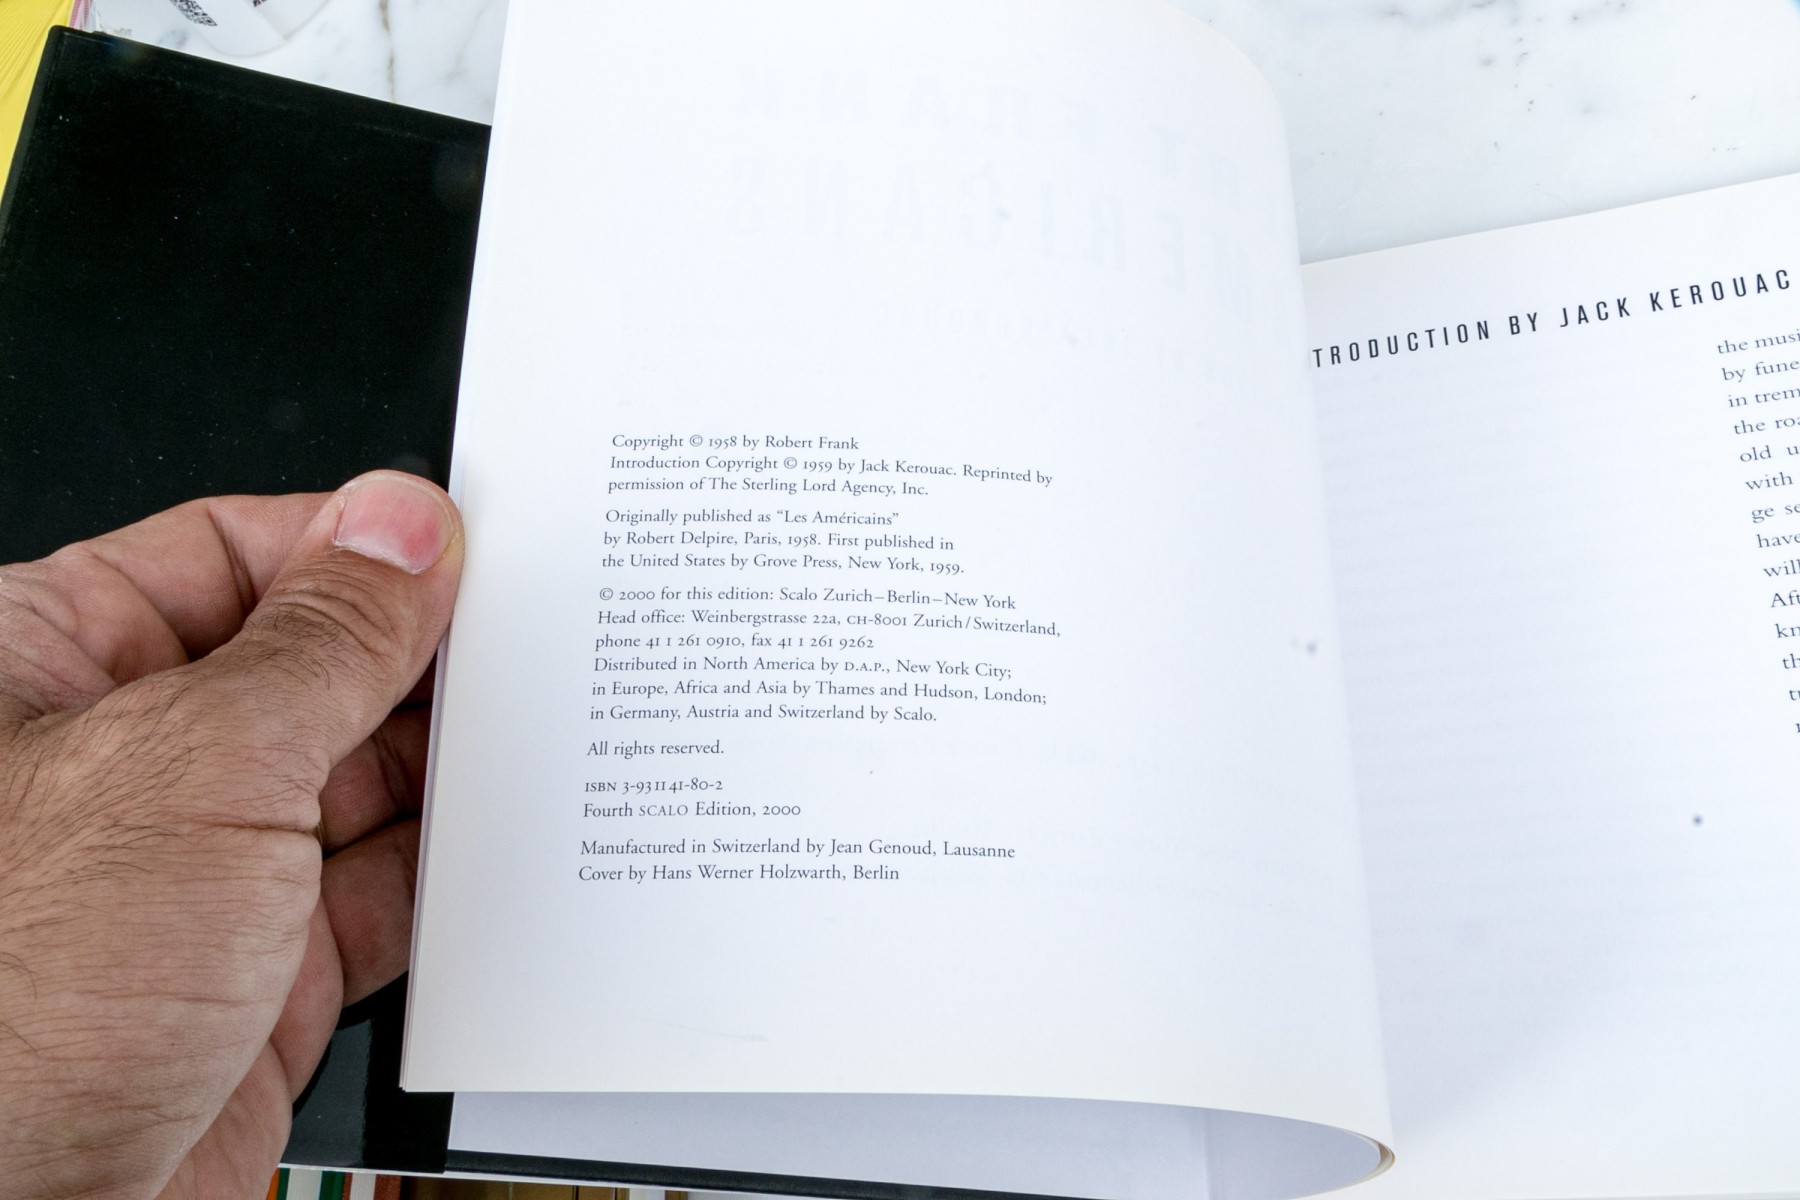 Copyright © 1958 by Robert Frank
Introduction Copyright © 1959 by Jack Kerouac. Reprinted by
permission of The Sterling Lord Agency, Inc.
Originally published as “Les Américains”
by Robert Delpire, Paris, 1958. First published in
the United States by Grove Press, New York, 1959.
© 2000 for this edition: Scalo Zurich–Berlin–New York
Head office: Weinbergstrasse 22a, CH-8001 Zurich/Switzerland,
phone 41 1 261 0910, fax 41 1 261 9262
Distributed in North America by D.A.P., New York City;
in Europe, Africa and Asia by Thames and Hudson, London;
in Germany, Austria and Switzerland by Scalo.
All rights reserved.
ISBN 3-931141-80-2
Fourth SCALO Edition, 2000
Manufactured in Switzerland by Jean Genoud, Lausanne
Cover by Hans Werner Holzwarth, Berlin
TRODUCTION BY JACK KEROUAC
the musi
by fune
in trem
the roa
old u
with
ge se
have
will
Aft
kn
th